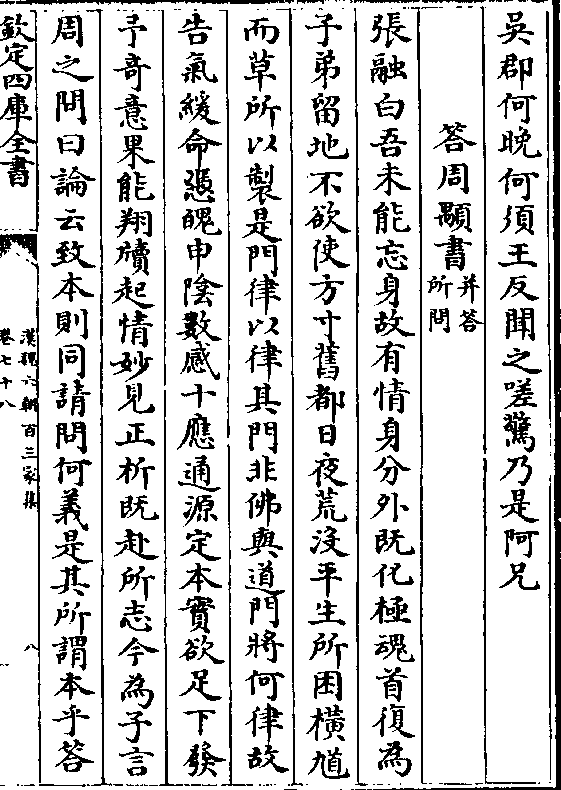 吳郡何晚何須王反聞之嗟驚乃是阿兄
答周顒書并答所問
張融白吾未能忘身故有情身分外既化極魂首復為
子弟留地不欲使方寸舊都日夜荒没平生所困橫馗
而草所以製是門律以律其門非佛與道門將何律故
告氣緩命憑魄申陰數感十應通源定本實欲足下發
予奇意果能翔牘起情妙見正析既赴所志今為子言
周之問曰論云致本則同請問何義是其所謂本乎答
欽定四庫全書
漢魏六朝百三家集
卷七十八
八